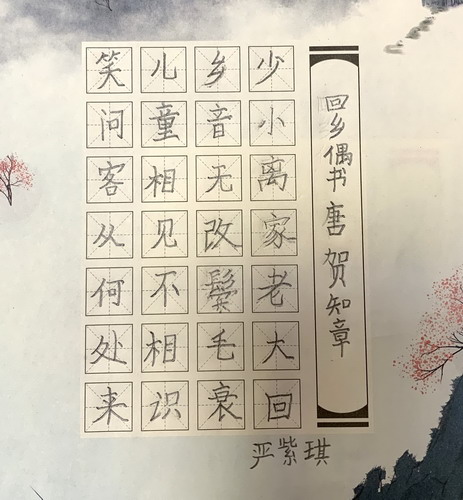 回乡偶书 唐 贺知章
少小离家老大回
乡音无改鬓毛衰
儿童相见不相识
笑问客从何处来
严紫琪